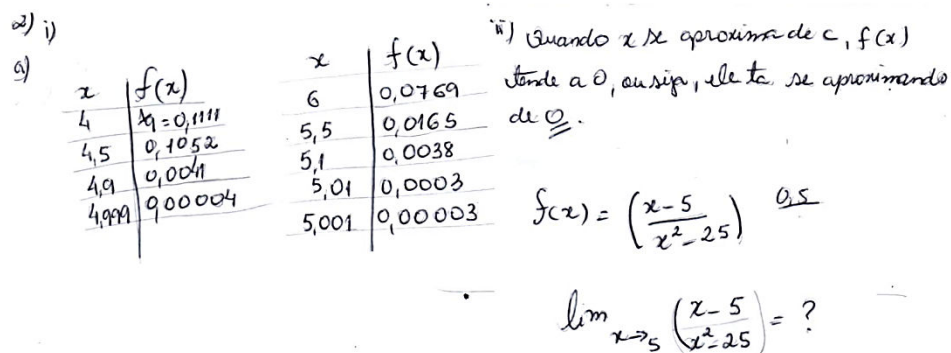 2) i)
a)
x | f(x)
4 | 1/9 = 0,1111
4,5 | 0,1052
4,9 | 0,0041
4,999 | 0,00004
x | f(x)
6 | 0,0769
5,5 | 0,0165
5,1 | 0,0038
5,01 | 0,0003
5,001 | 0,00003
ii) Quando x se aproxima de c, f(x)
tende a 0, ou seja, ele ta se aproximando
de 0.
f(x) = (x-5 / x²-25) 0,5
lim x→5 (x-5 / x²-25) = ?